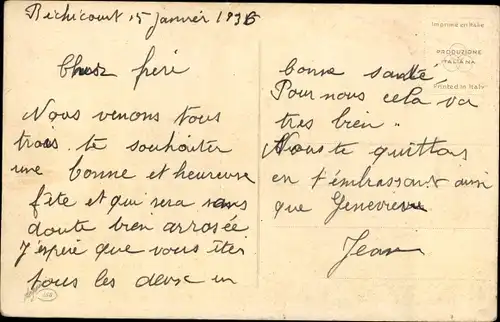 Réchicourt 15 Janvier 1936
Cher frère
Nous venons tous
trois te souhaiter
une bonne et heureuse
fête et qui sera sans
doute bien arrosée
J'espère que vous êtes
tous les deux en
Imprimé en Italie
PRODUZIONE
ITALIANA
Printed in Italy
bonne santé
Pour nous cela va
très bien.
Nous te quittons
en t'embrassant ainsi
que Geneviève
Jean